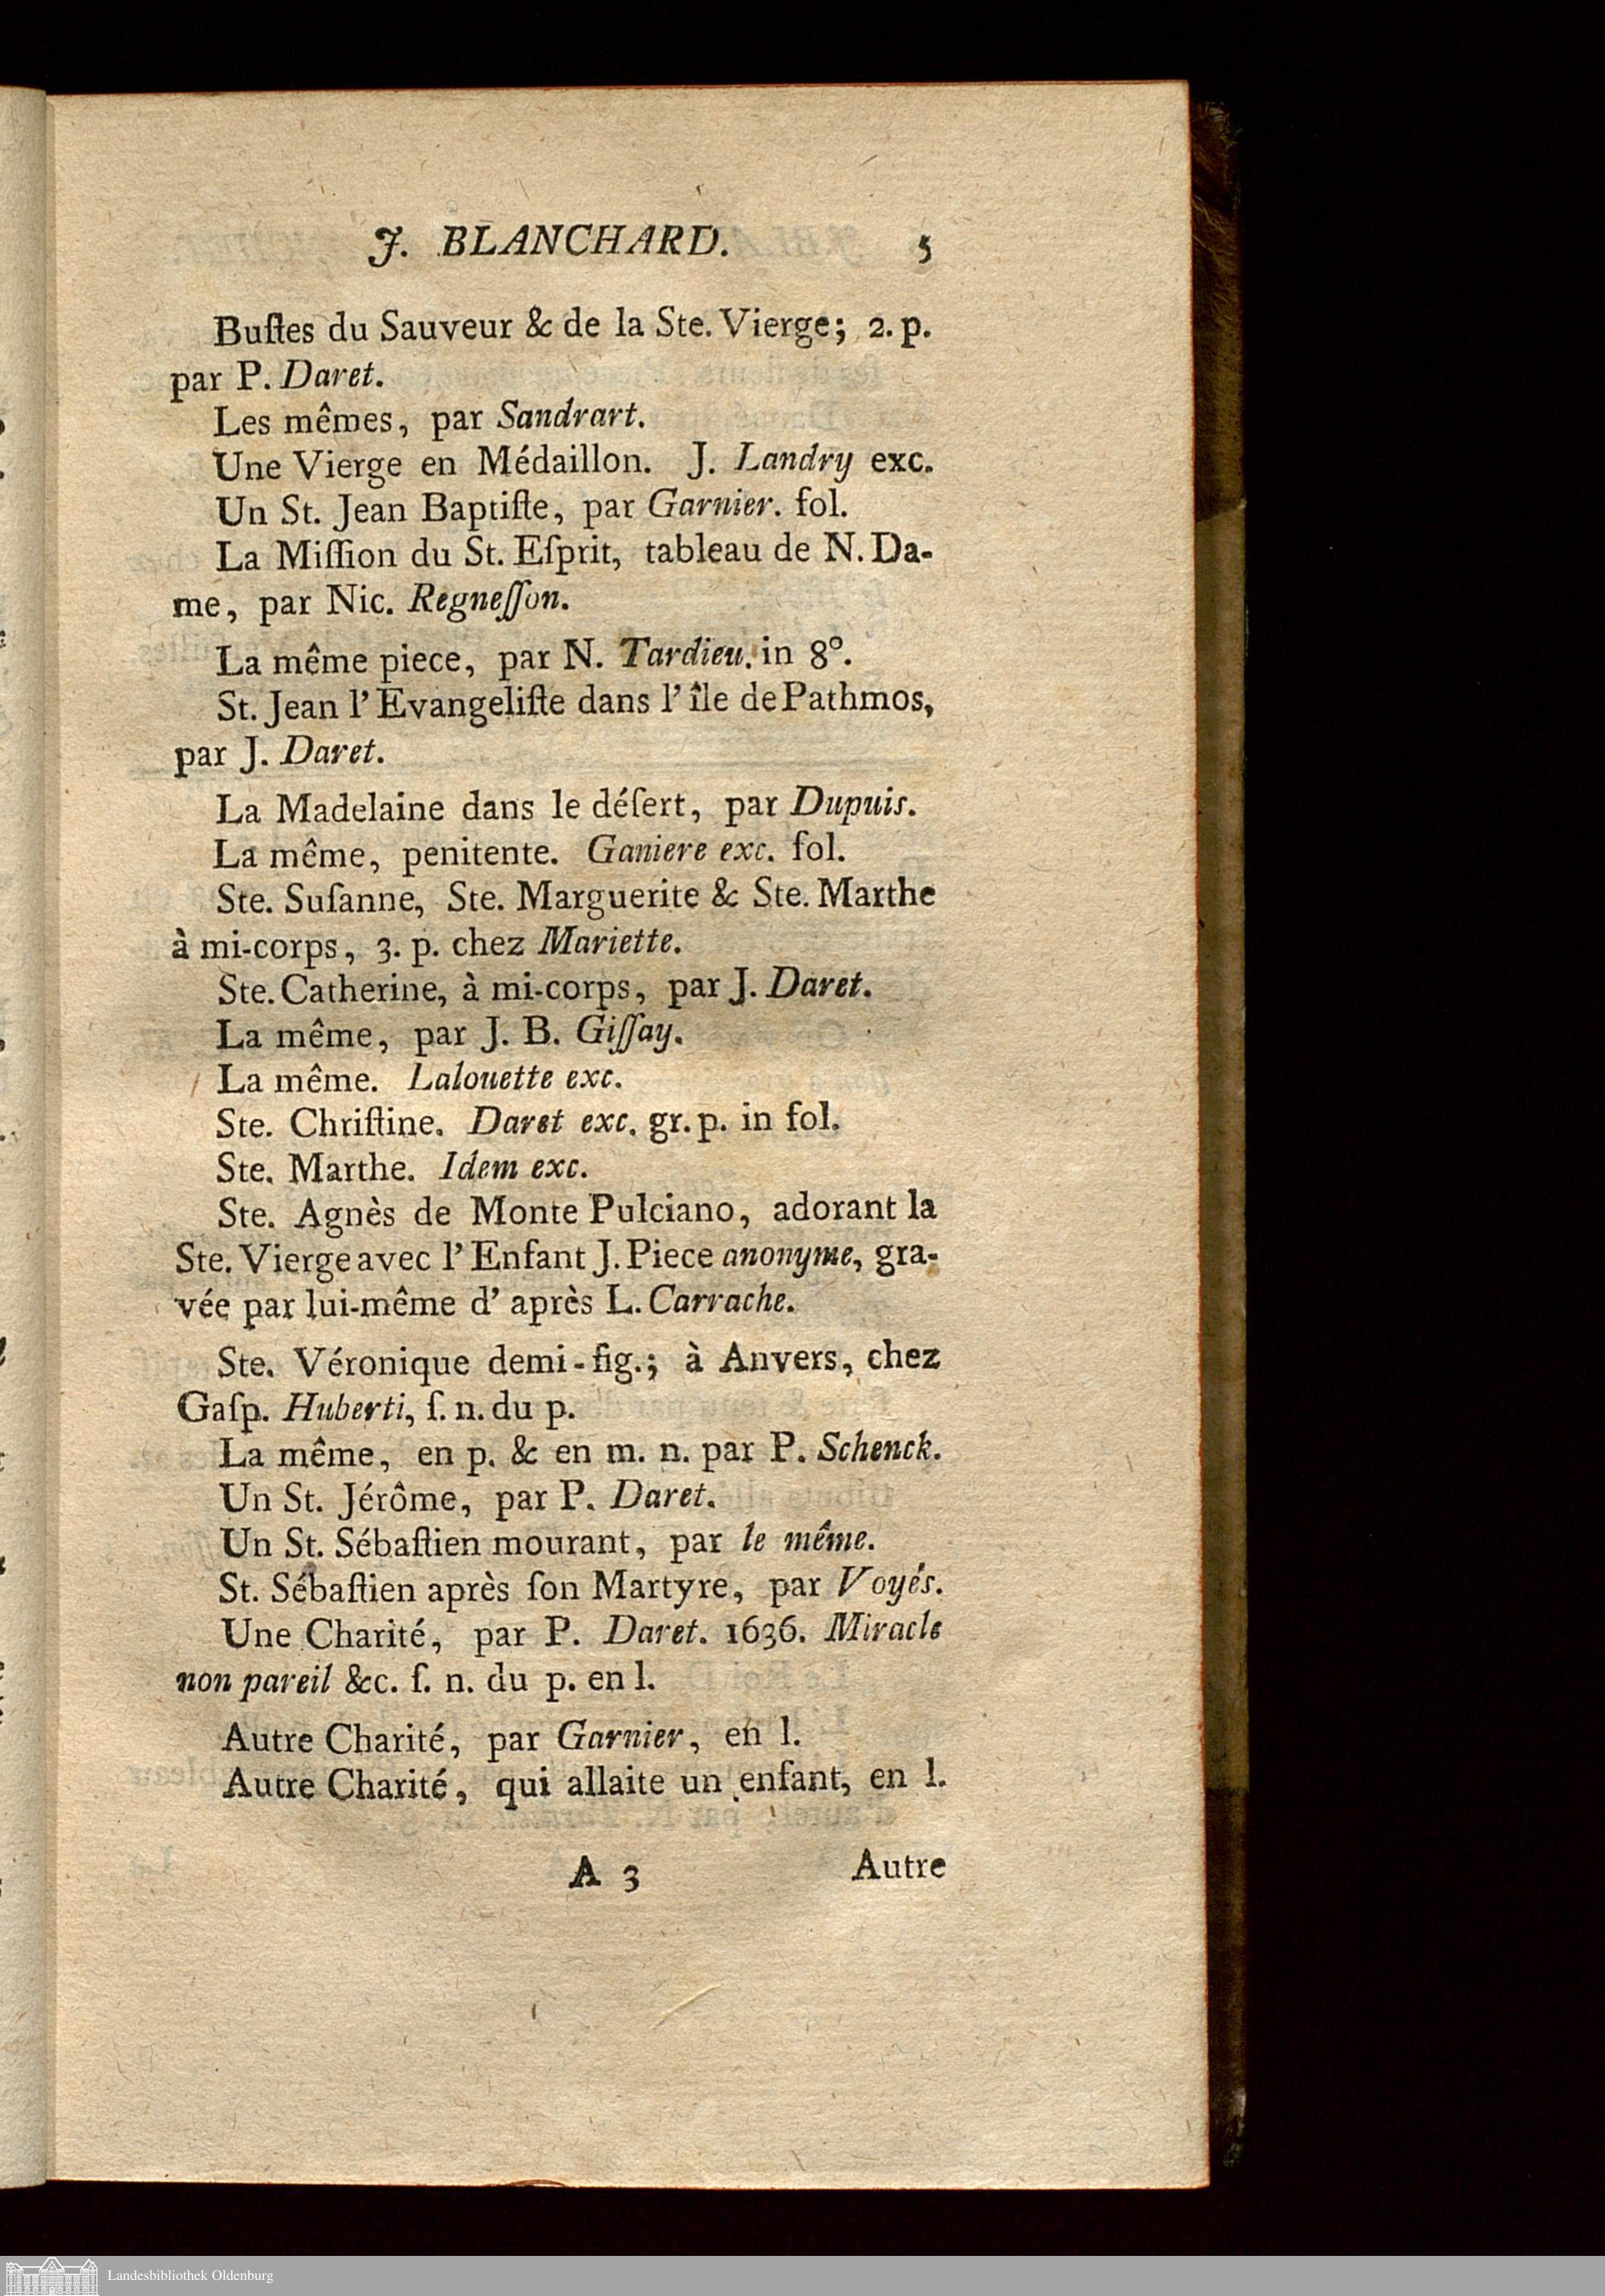 J. BLANCHARD. 5
Buſtes du Sauveur & de la Ste. Vierge; 2. p.
par P. Daret.
Les mêmes, par Sandrart.
Une Vierge en Médaillon. J. Landry exc.
Un St. Jean Baptiſte, par Garnier. fol.
La Miſſion du St. Eſprit, tableau de N. Da-
me, par Nic. Regneſſon.
La même piece, par N. Tardieu. in 8°.
St. Jean l' Evangeliſte dans l' île de Pathmos,
par J. Daret.
La Madelaine dans le déſert, par Dupuis.
La même, penitente. Ganiere exc. fol.
Ste. Suſanne, Ste. Marguerite & Ste. Marthe
à mi-corps, 3. p. chez Mariette.
Ste. Catherine, à mi-corps, par J. Daret.
La même, par J. B. Giſſay.
La même. Lalouette exc.
Ste. Chriſtine. Daret exc. gr. p. in fol.
Ste. Marthe. Idem exc.
Ste. Agnès de Monte Pulciano, adorant la
Ste. Vierge avec l' Enfant J. Piece anonyme, gra-
vée par lui-même d' après L. Carrache.
Ste. Véronique demi-fig.; à Anvers, chez
Gaſp. Huberti, ſ. n. du p.
La même, en p. & en m. n. par P. Schenck.
Un St. Jérôme, par P. Daret.
Un St. Sébaſtien mourant, par le même.
St. Sébaſtien après ſon Martyre, par Voyés.
Une Charité, par P. Daret. 1636. Miracle
non pareil &c. ſ. n. du p. en l.
Autre Charité, par Garnier, en l.
Autre Charité, qui allaite un enfant, en l.
A 3 Autre
Landesbibliothek Oldenburg